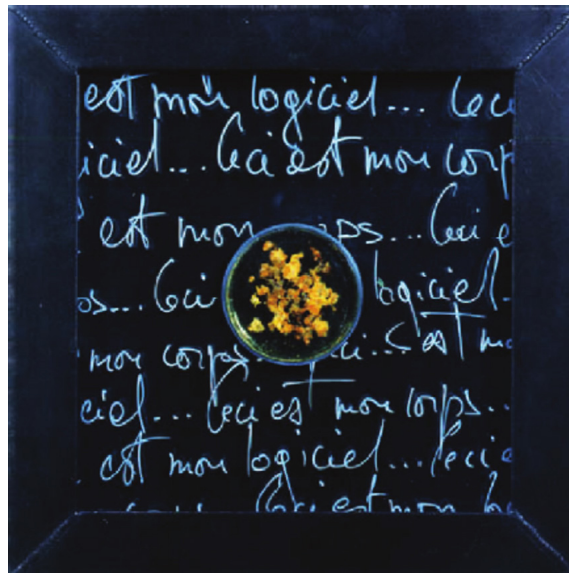 est mon logiciel... Ceci
iciel... Ceci est mon corp
est mon ps... Ceci e
s... Ceci logiciel.
mon corps est mo
ciel... Ceci est mon corps...
est mon logiciel... Ceci e
Ceci est mon